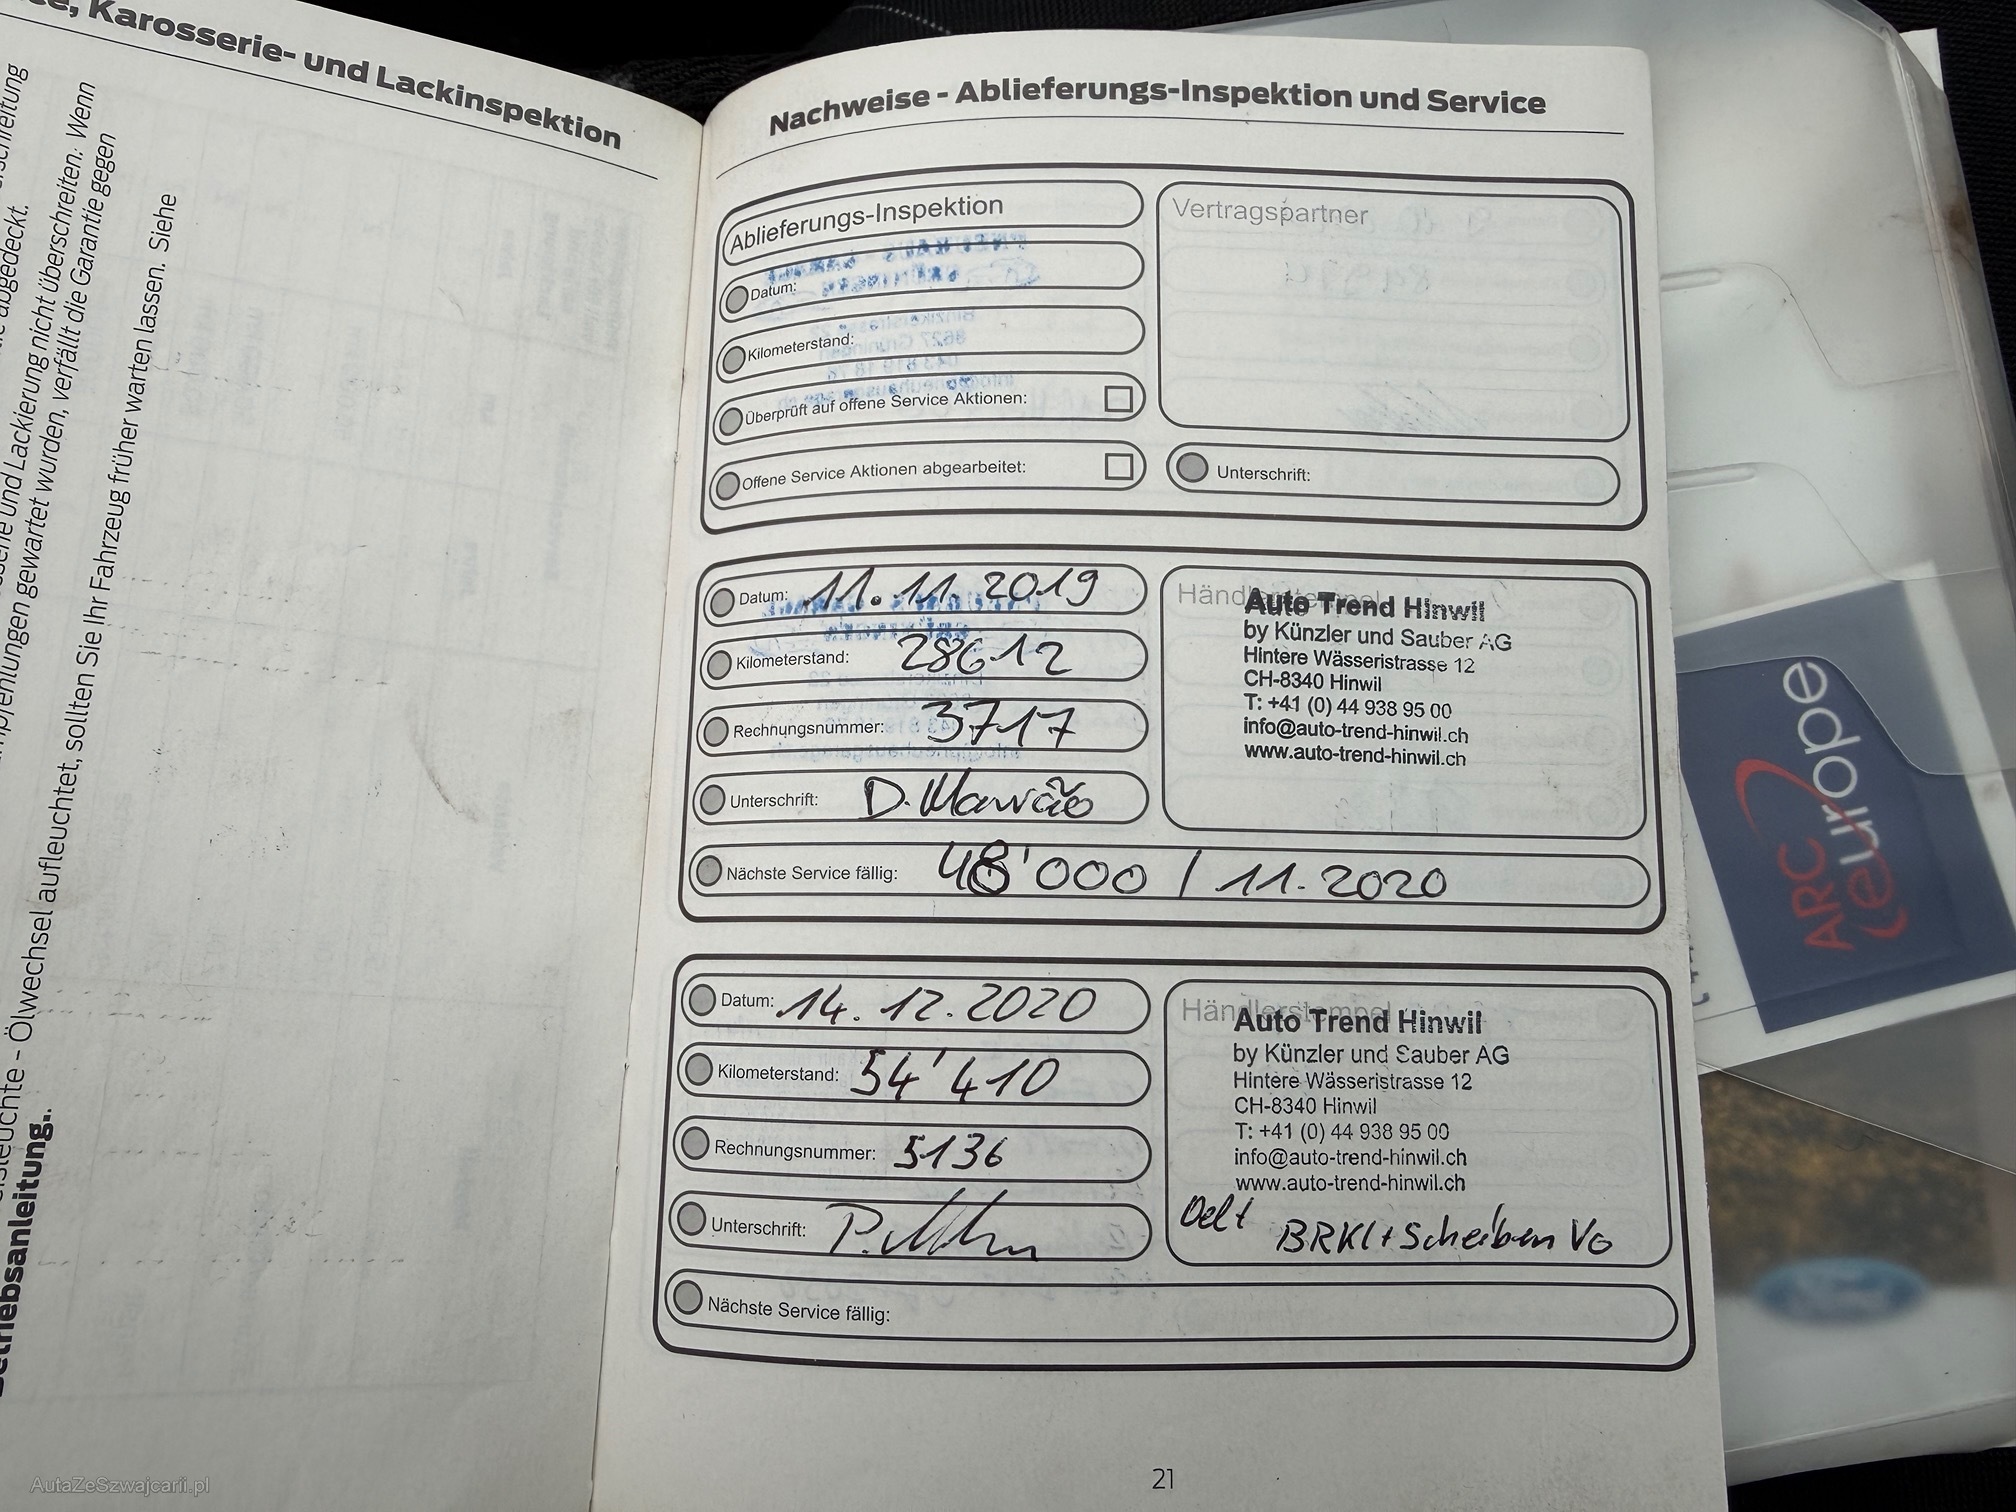 Karosserie- und Lackinspektion
abgedeckt.
und Lackierung nicht überschreiten. Wenn
gewartet wurden, verfällt die Garantie gegen
- Ölwechsel aufleuchtet, sollten Sie Ihr Fahrzeug früher warten lassen. Siehe
Betriebsanleitung.
Nachweise - Ablieferungs-Inspektion und Service
Ablieferungs-Inspektion
Vertragspartner
Datum:
Kilometerstand:
Überprüft auf offene Service Aktionen:
Offene Service Aktionen abgearbeitet:
Unterschrift:
Datum: 11.11.2019
Kilometerstand: 28612
Rechnungsnummer: 3717
Unterschrift: D.
Nächste Service fällig: 48'000 / 11.2020
Händlerstempel
Auto Trend Hinwil
by Künzler und Sauber AG
Hintere Wässeristrasse 12
CH-8340 Hinwil
T: +41 (0) 44 938 95 00
info@auto-trend-hinwil.ch
www.auto-trend-hinwil.ch
Datum: 14.12.2020
Kilometerstand: 54'410
Rechnungsnummer: 5136
Unterschrift: P.
Händlerstempel
Auto Trend Hinwil
by Künzler und Sauber AG
Hintere Wässeristrasse 12
CH-8340 Hinwil
T: +41 (0) 44 938 95 00
info@auto-trend-hinwil.ch
www.auto-trend-hinwil.ch
BRKl + Scheiben Vo
Nächste Service fällig:
21
ARC
europe
AutaZeSzwajcarii.pl